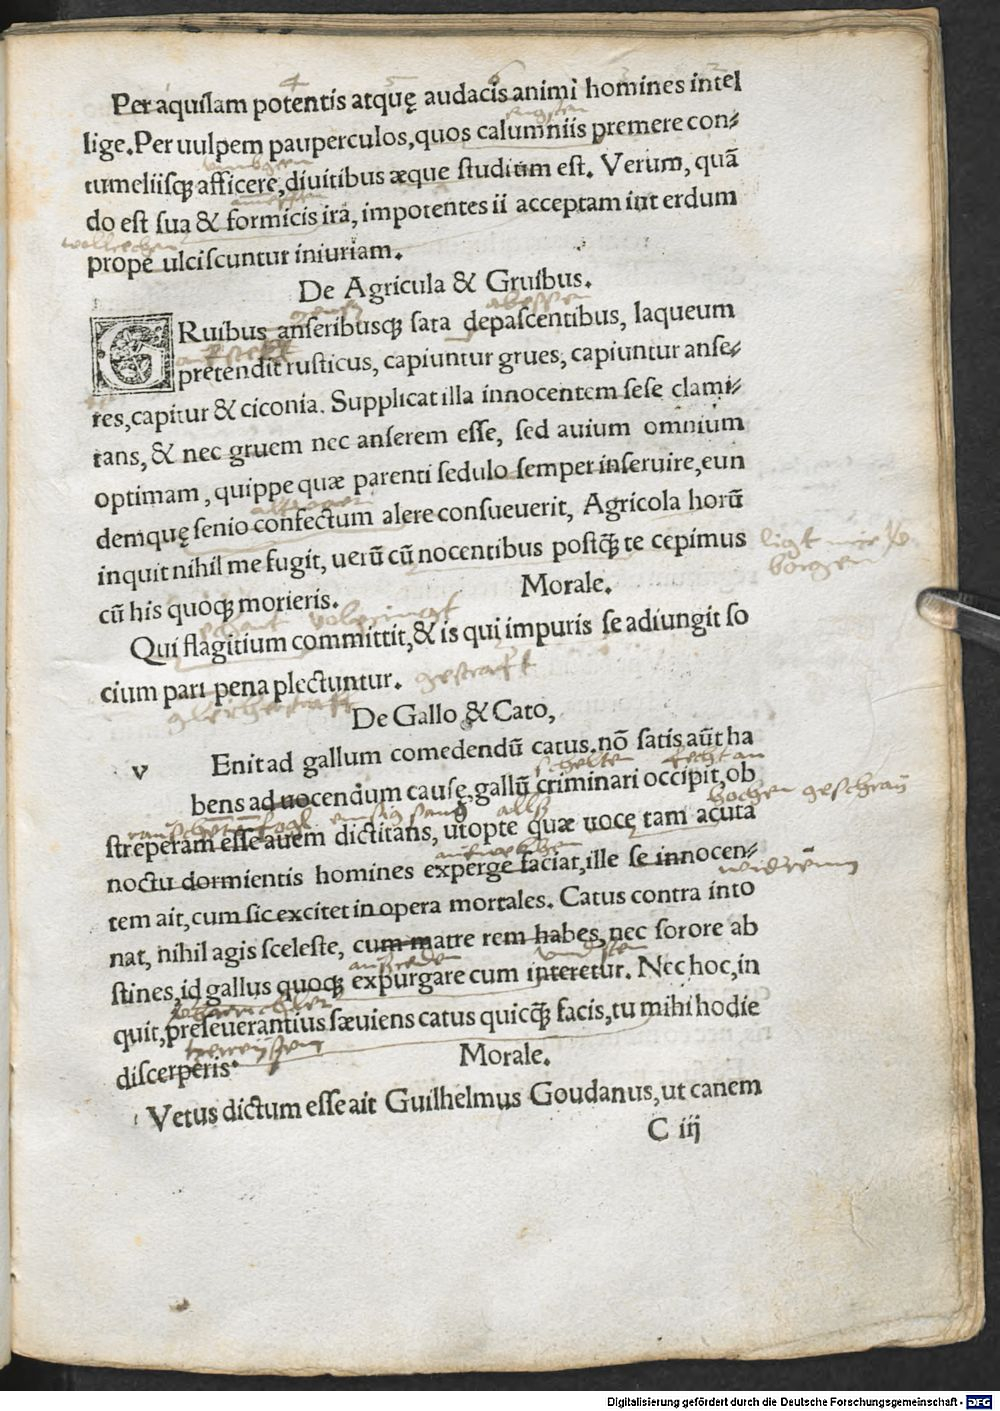 Per aquilam potentis atquę audacis animi homines intel
lige. Per uulpem pauperculos, quos calumniis premere con-
tumeliisqꝫ afficere, diuitibus æque studium est. Verum, quã
do est sua & formicis ira, impotentes ii acceptam int erdum
prope ulciscuntur iniuriam.
De Agricula & Gruibus.
GRuibus anseribusqꝫ sata depascentibus, laqueum
pretendit rusticus, capiuntur grues, capiuntur anse-
res, capitur & ciconia. Supplicat illa innocentem sese clami-
tans, & nec gruem nec anserem esse, sed auium omnium
optimam, quippe quæ parenti sedulo semper inseruire, eun
demquę senio confectum alere consueuerit, Agricola horũ
inquit nihil me fugit, uerũ cũ nocentibus postqꝫ te cepimus
ligt mir
borgen
cũ his quoqꝫ morieris.
Morale.
Qui flagitium committit, & is qui impuris se adiungit so
cium pari pena plectuntur.
gestrafft
De Gallo & Cato,
v Enit ad gallum comedendũ catus. nõ satis aũt ha
schelten
bens ad uocendum causę, gallũ criminari occipit, ob
hochen geschray
streperam esse auem dictitans, utpote quæ uoce tam acuta
noctu dormientis homines experge faciat, ille se innocen-
tem ait, cum sic excitet in opera mortales. Catus contra into
nat, nihil agis sceleste, cum matre rem habes, nec sorore ab
stines, id gallus quoqꝫ expurgare cum interetur. Nec hoc, in
quit, preseuerantius sæuiens catus quicqꝫ facis, tu mihi hodie
discerperis.
Morale.
Vetus dictum esse ait Guilhelmus Goudanus, ut canem
C iij
Digitalisierung gefördert durch die Deutsche Forschungsgemeinschaft - DFG